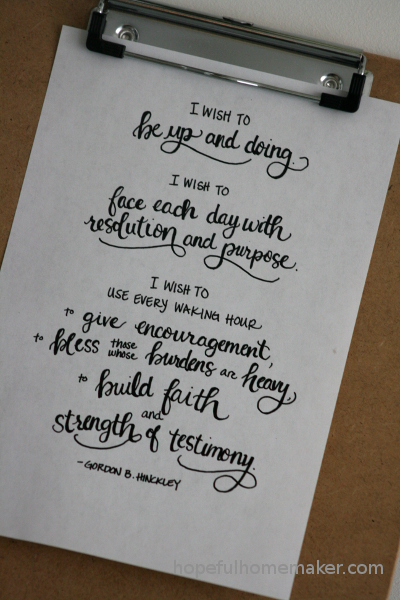 I WISH TO
be up and doing.
I WISH TO
face each day with
resolution and purpose.
I WISH TO
USE EVERY WAKING HOUR
to give encouragement,
to bless those whose burdens are heavy,
to build faith
and
strength of testimony.
-GORDON B. HINCKLEY
hopefulhomemaker.com